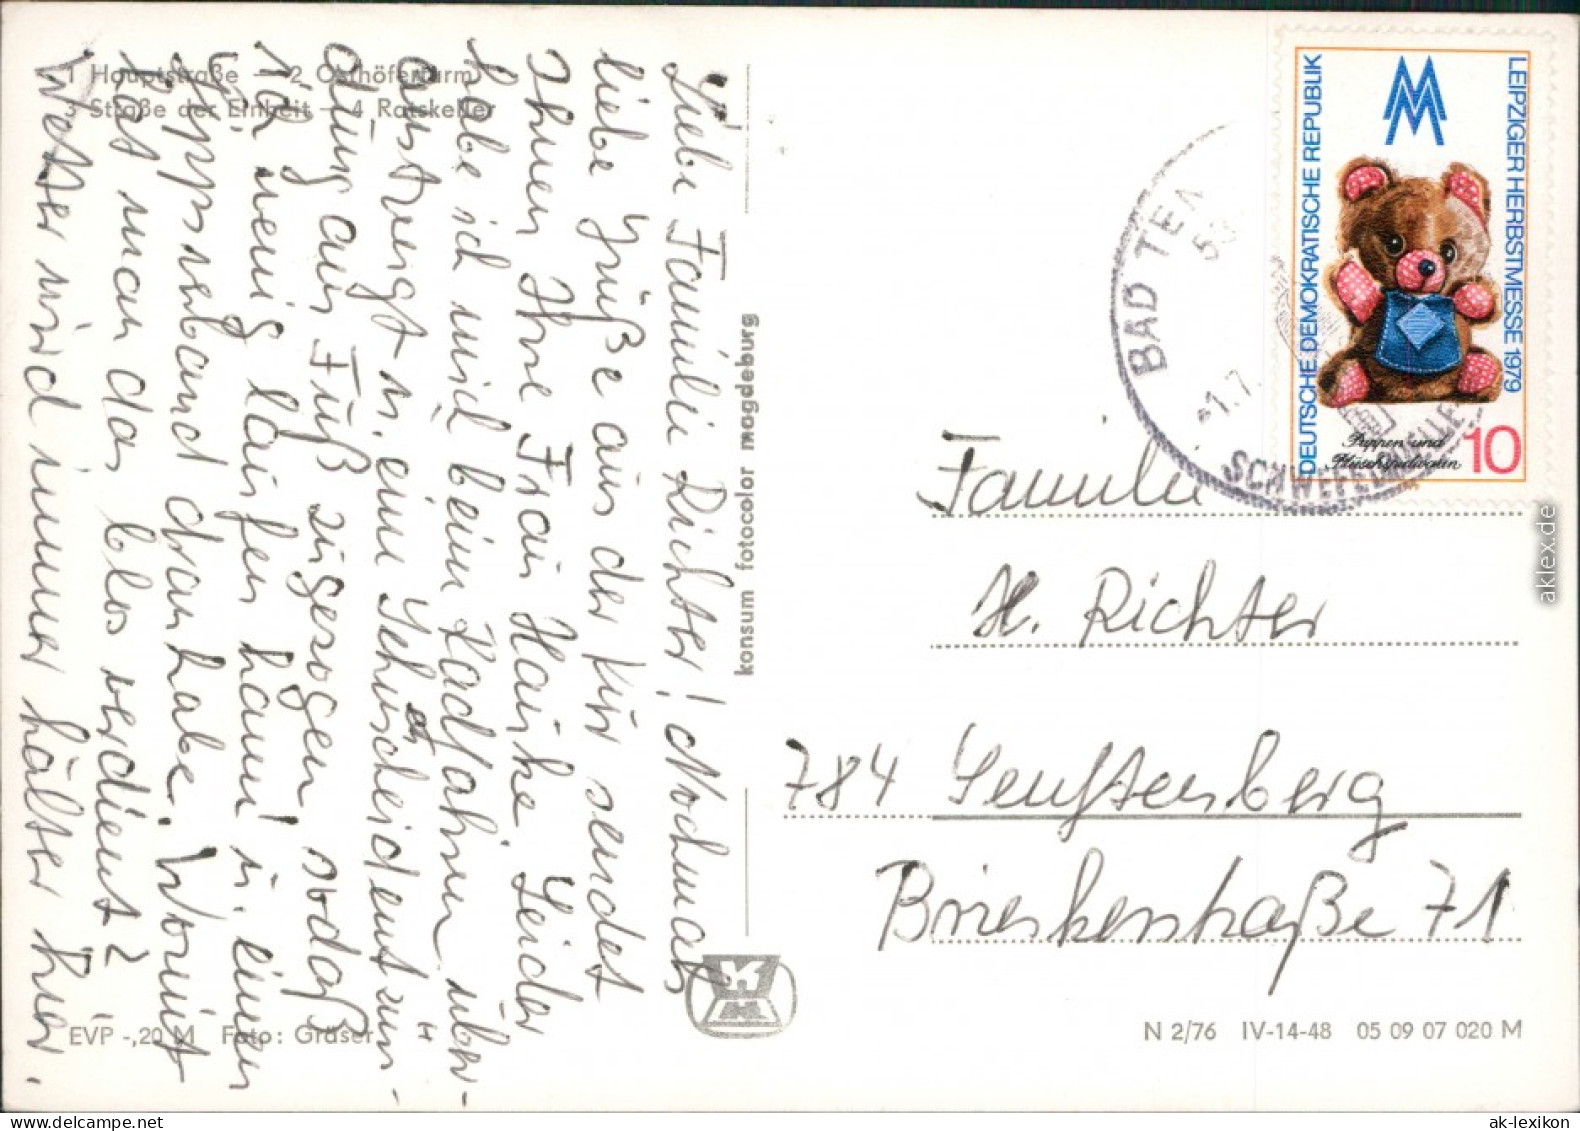 1 Hauptstraße — 2 Osthöferturm
3 Straße der Einheit — 4 Ratskeller
Liebe Familie Richter! Nochmals
liebe Grüße aus der Kur sendet
Ihnen Ihre Frau Hauske. Leider
habe ich mich beim Radfahren über-
anstrengt u. eine Sehnenscheidentzün-
dung am Fuß zugezogen, sodaß
ich wenig laufen kann u. einen
Gippsverband dran habe. Womit
hat man das blos verdient?
Wetter wird immer kälter hier.
EVP -,20 M Foto: Gräser
konsum fotocolor magdeburg
DEUTSCHE DEMOKRATISCHE REPUBLIK
LEIPZIGER HERBSTMESSE 1979
Puppen und
Plüschspielwaren
10
BAD TEN
SCHWEFELQUELLE
Familie
H. Richter
784 Senftenberg
Brieskerstraße 71
N 2/76 IV-14-48 05 09 07 020 M
aklex.de
www.delcampe.net
ak-lexikon